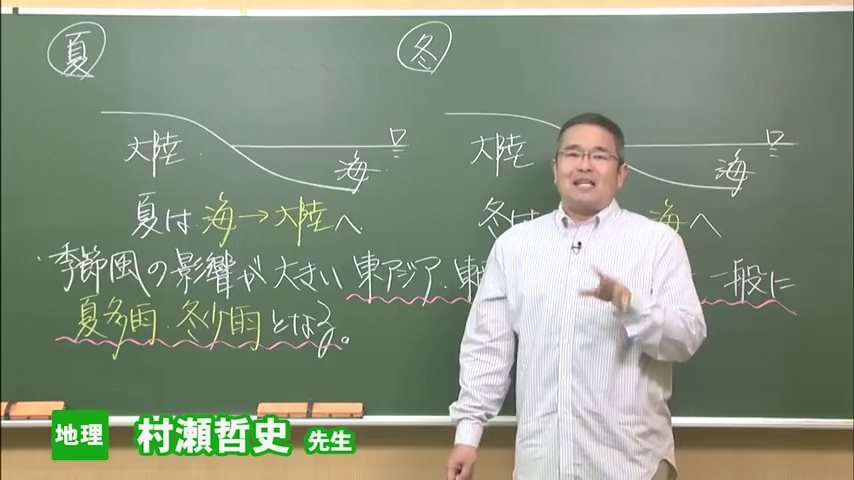 夏
冬
大陸
海
大陸
海
夏は 海→大陸へ
冬は 海へ
・季節風の影響が大きい 東アジア・東 一般に
夏多雨・冬少雨となる。
地理 村瀬哲史 先生